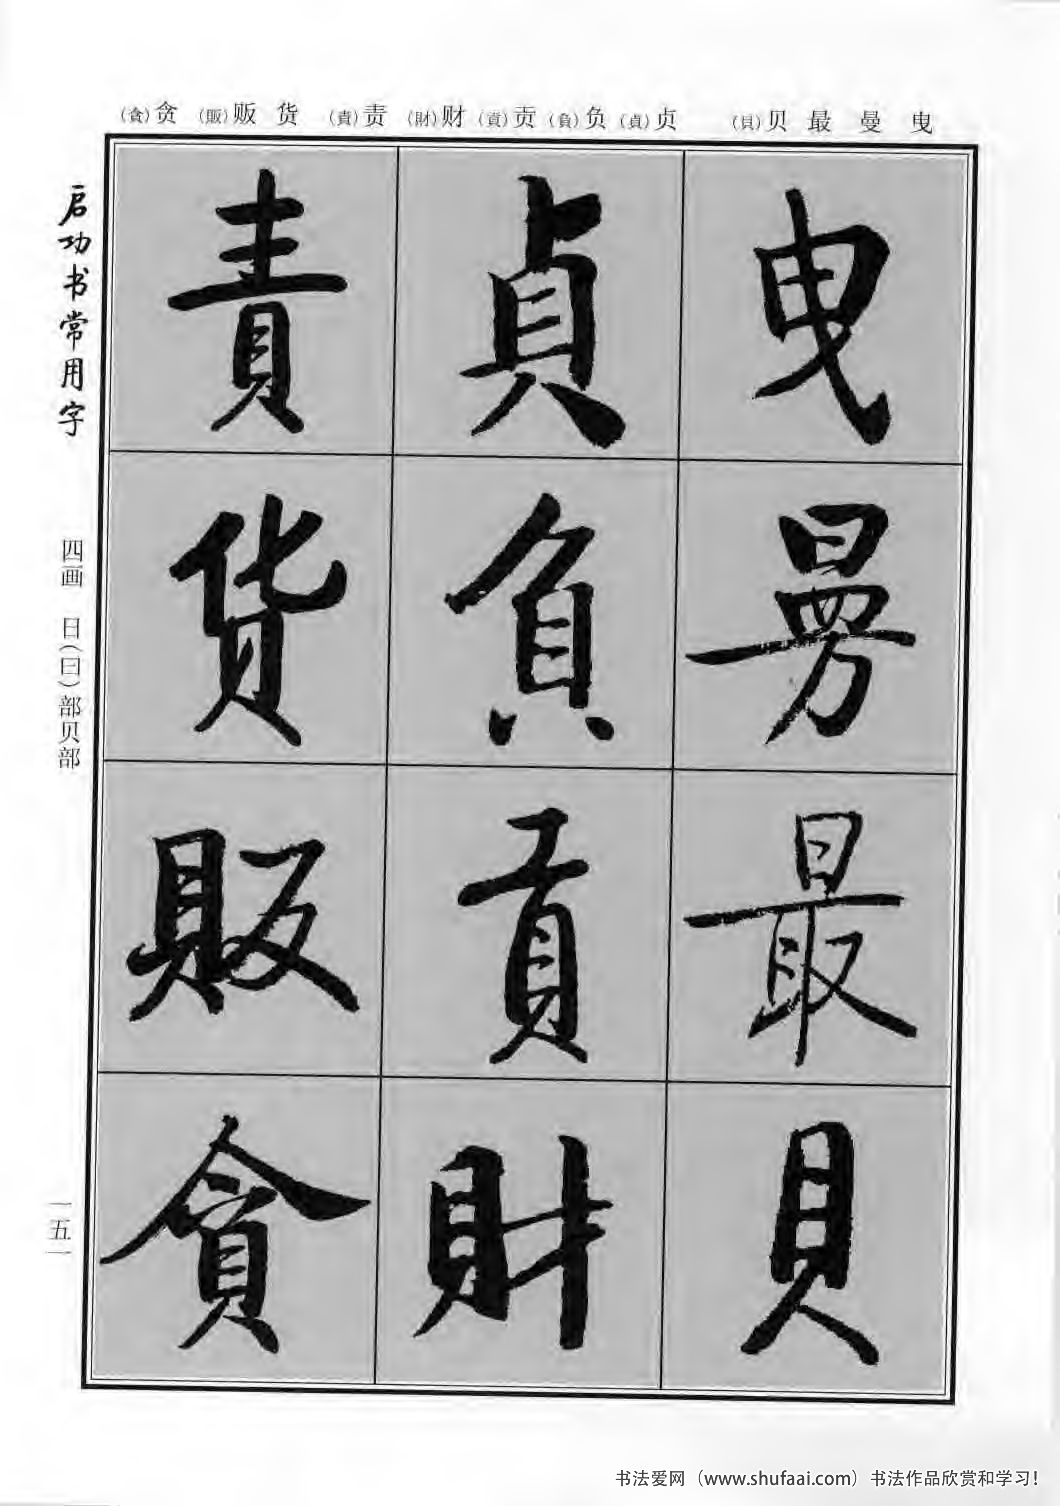 曳 曼 最 贝(貝) 贞(貞) 负(負) 贡(貢) 财(財) 责(責) 货 贩(販) 贪(貪)
曳
曼
最
貝
貞
負
貢
財
責
货
販
貪
启功书常用字
四画 日(曰)部贝部
一五一
书法爱网（www.shufaai.com）书法作品欣赏和学习！